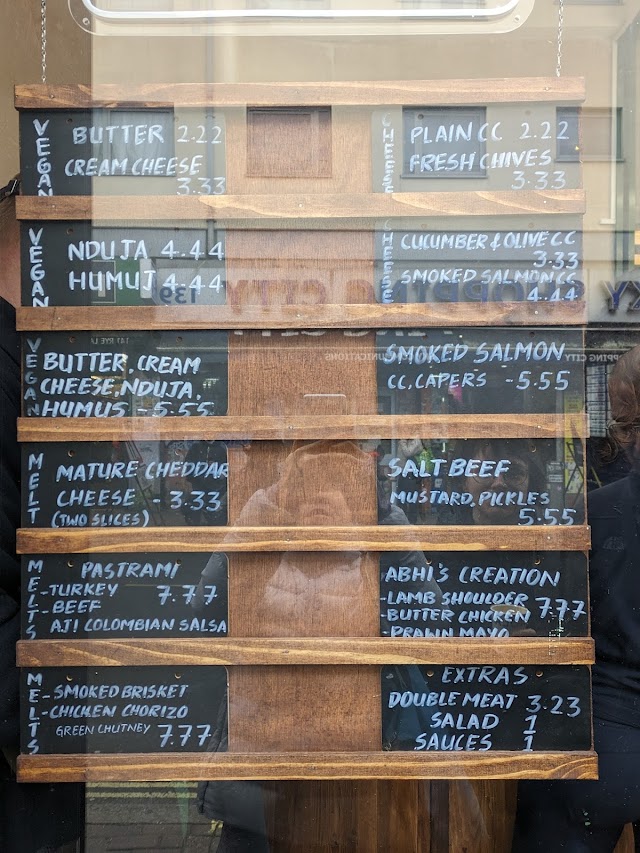 VEGAN
BUTTER 2.22
CREAM CHEESE
3.33
VEGAN
NDUJA 4.44
HUMUJ 4.44
VEGAN
BUTTER, CREAM
CHEESE, NDUJA,
HUMUS - 5.55
MELT
MATURE CHEDDAR
CHEESE - 3.33
(TWO SLICES)
MELTS
PASTRAMI
-TURKEY 7.77
-BEEF
AJI COLOMBIAN SALSA
MELTS
-SMOKED BRISKET
-CHICKEN CHORIZO
GREEN CHUTNEY 7.77
CHEESE
PLAIN CC 2.22
FRESH CHIVES
3.33
CHEESE
CUCUMBER & OLIVE CC
3.33
SMOKED SALMON CC
4.44
SMOKED SALMON
CC, CAPERS - 5.55
SALT BEEF
MUSTARD, PICKLES
5.55
ABHI'S CREATION
-LAMB SHOULDER
-BUTTER CHICKEN 7.77
-PRAWN MAYO
EXTRAS
DOUBLE MEAT 3.23
SALAD 1
SAUCES 1
SHOPPING CITY
139